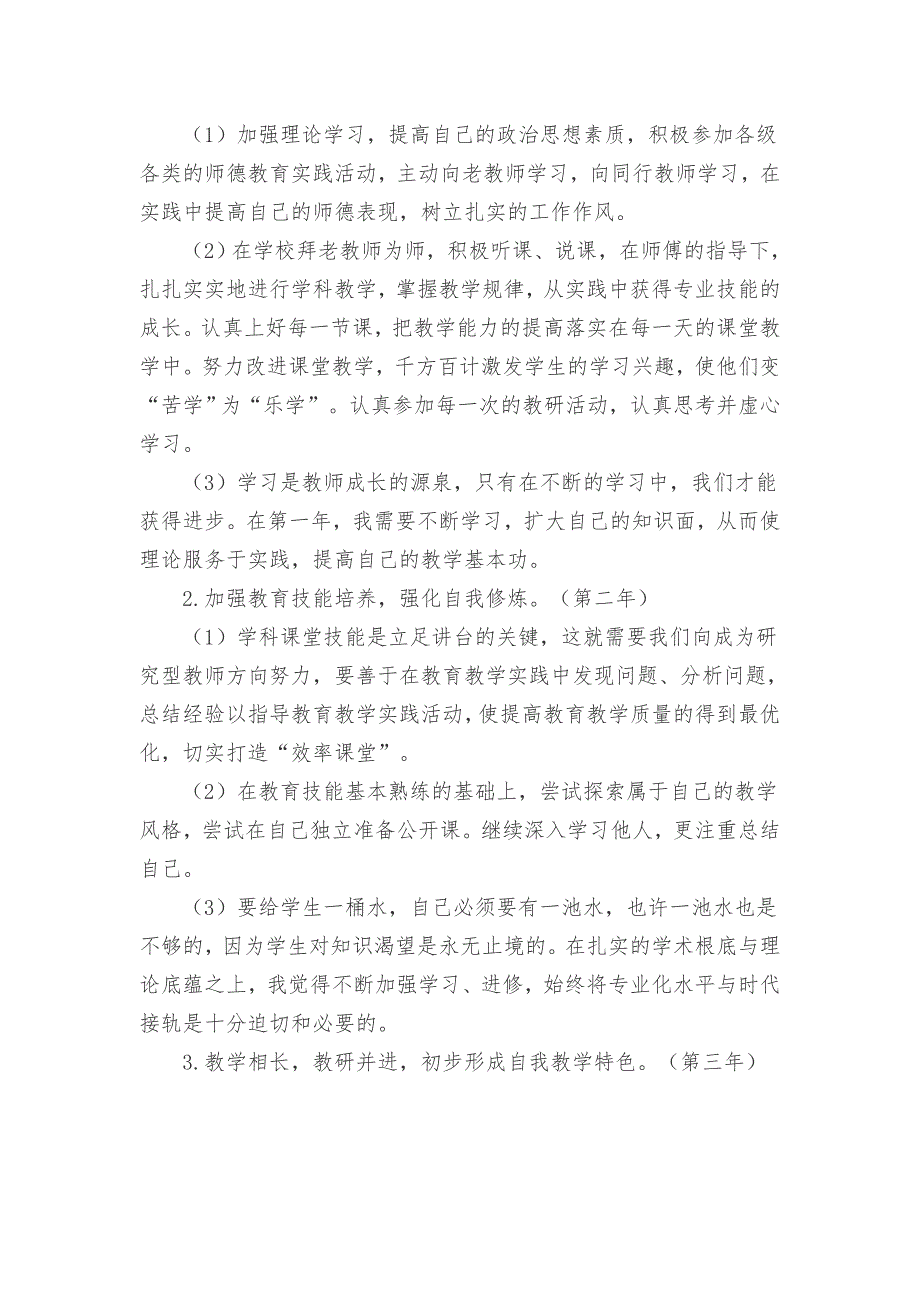 （1）加强理论学习，提高自己的政治思想素质，积极参加各级
各类的师德教育实践活动，主动向老教师学习，向同行教师学习，在
实践中提高自己的师德表现，树立扎实的工作作风。
（2）在学校拜老教师为师，积极听课、说课，在师傅的指导下，
扎扎实实地进行学科教学，掌握教学规律，从实践中获得专业技能的
成长。认真上好每一节课，把教学能力的提高落实在每一天的课堂教
学中。努力改进课堂教学，千方百计激发学生的学习兴趣，使他们变
“苦学”为“乐学”。认真参加每一次的教研活动，认真思考并虚心
学习。
（3）学习是教师成长的源泉，只有在不断的学习中，我们才能
获得进步。在第一年，我需要不断学习，扩大自己的知识面，从而使
理论服务于实践，提高自己的教学基本功。
2.加强教育技能培养，强化自我修炼。（第二年）
（1）学科课堂技能是立足讲台的关键，这就需要我们向成为研
究型教师方向努力，要善于在教育教学实践中发现问题、分析问题，
总结经验以指导教育教学实践活动，使提高教育教学质量的得到最优
化，切实打造“效率课堂”。
（2）在教育技能基本熟练的基础上，尝试探索属于自己的教学
风格，尝试在自己独立准备公开课。继续深入学习他人，更注重总结
自己。
（3）要给学生一桶水，自己必须要有一池水，也许一池水也是
不够的，因为学生对知识渴望是永无止境的。在扎实的学术根底与理
论底蕴之上，我觉得不断加强学习、进修，始终将专业化水平与时代
接轨是十分迫切和必要的。
3.教学相长，教研并进，初步形成自我教学特色。（第三年）